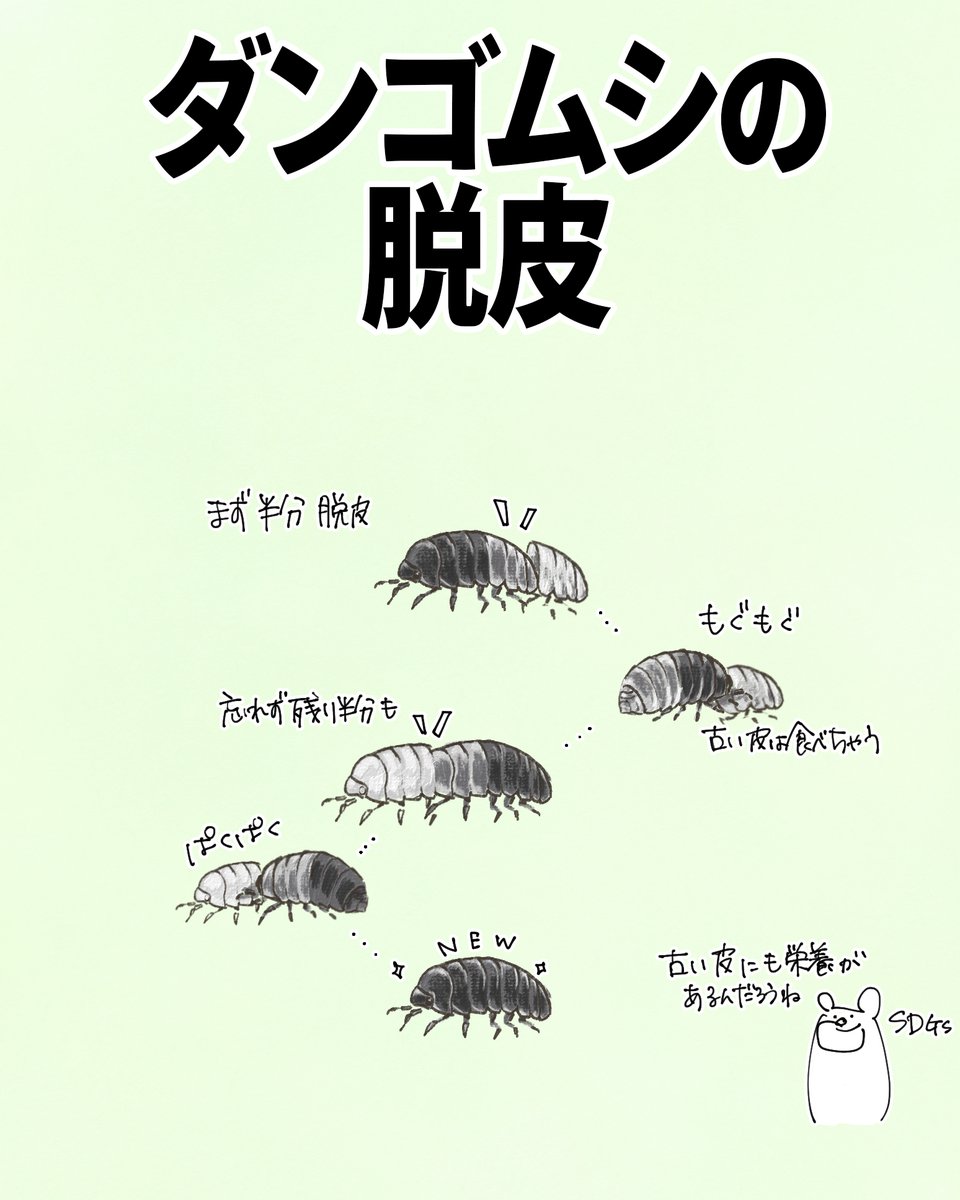 ダンゴムシの
脱皮
まず半分 脱皮
もぐもぐ
古い皮は食べちゃう
忘れず残り半分も
ぱくぱく
NEW
古い皮にも栄養が
あるんだろうね
SDGs